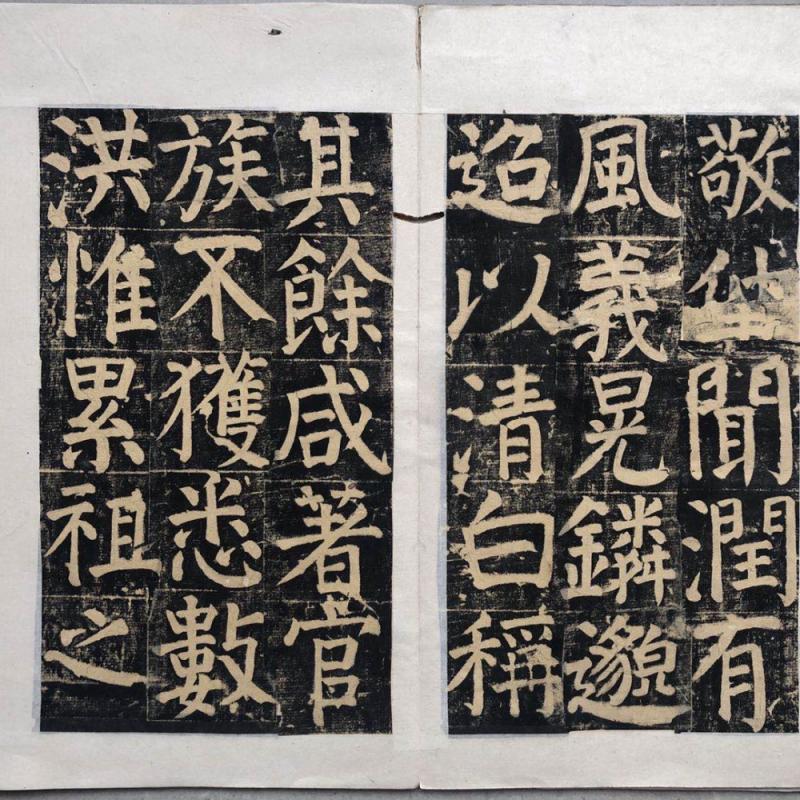 敬聞潤有
風義晃鏻邈
迢以清白稱
其餘咸著官
族不獲悉數
洪惟累祖之